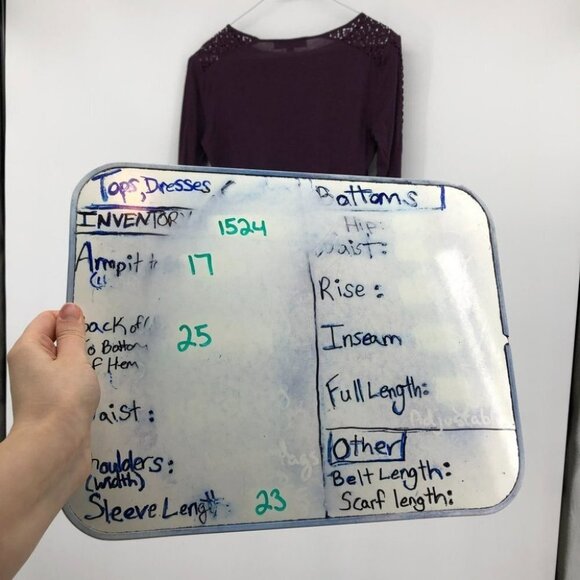 Tops, Dresses
INVENTORY 1524
Armpit 17
Back of
To Bottom 25
of Hem
Waist:
Shoulders:
(width)
Sleeve Leng 23
Bottoms
Hip:
Waist:
Rise:
Inseam
Full Length:
Adjustabl
Other
Belt Length:
Scarf length: